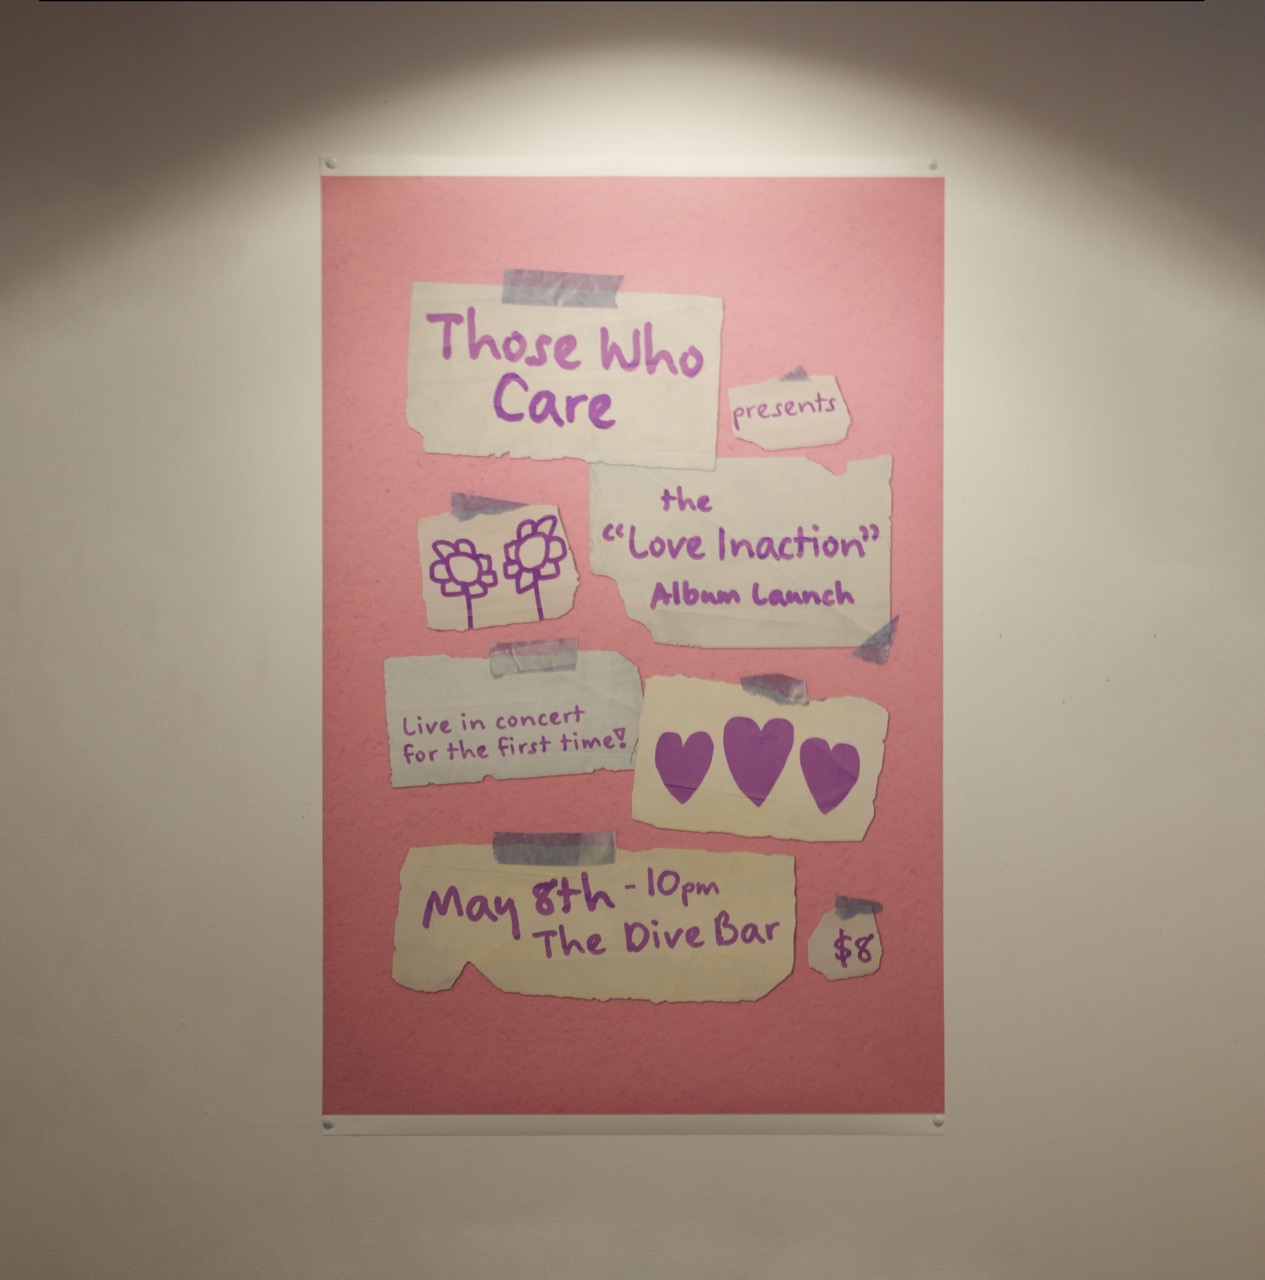 Those Who
Care
presents
the
“Love Inaction”
Album Launch
Live in concert
for the first time!
May 8th - 10pm
The Dive Bar
$8